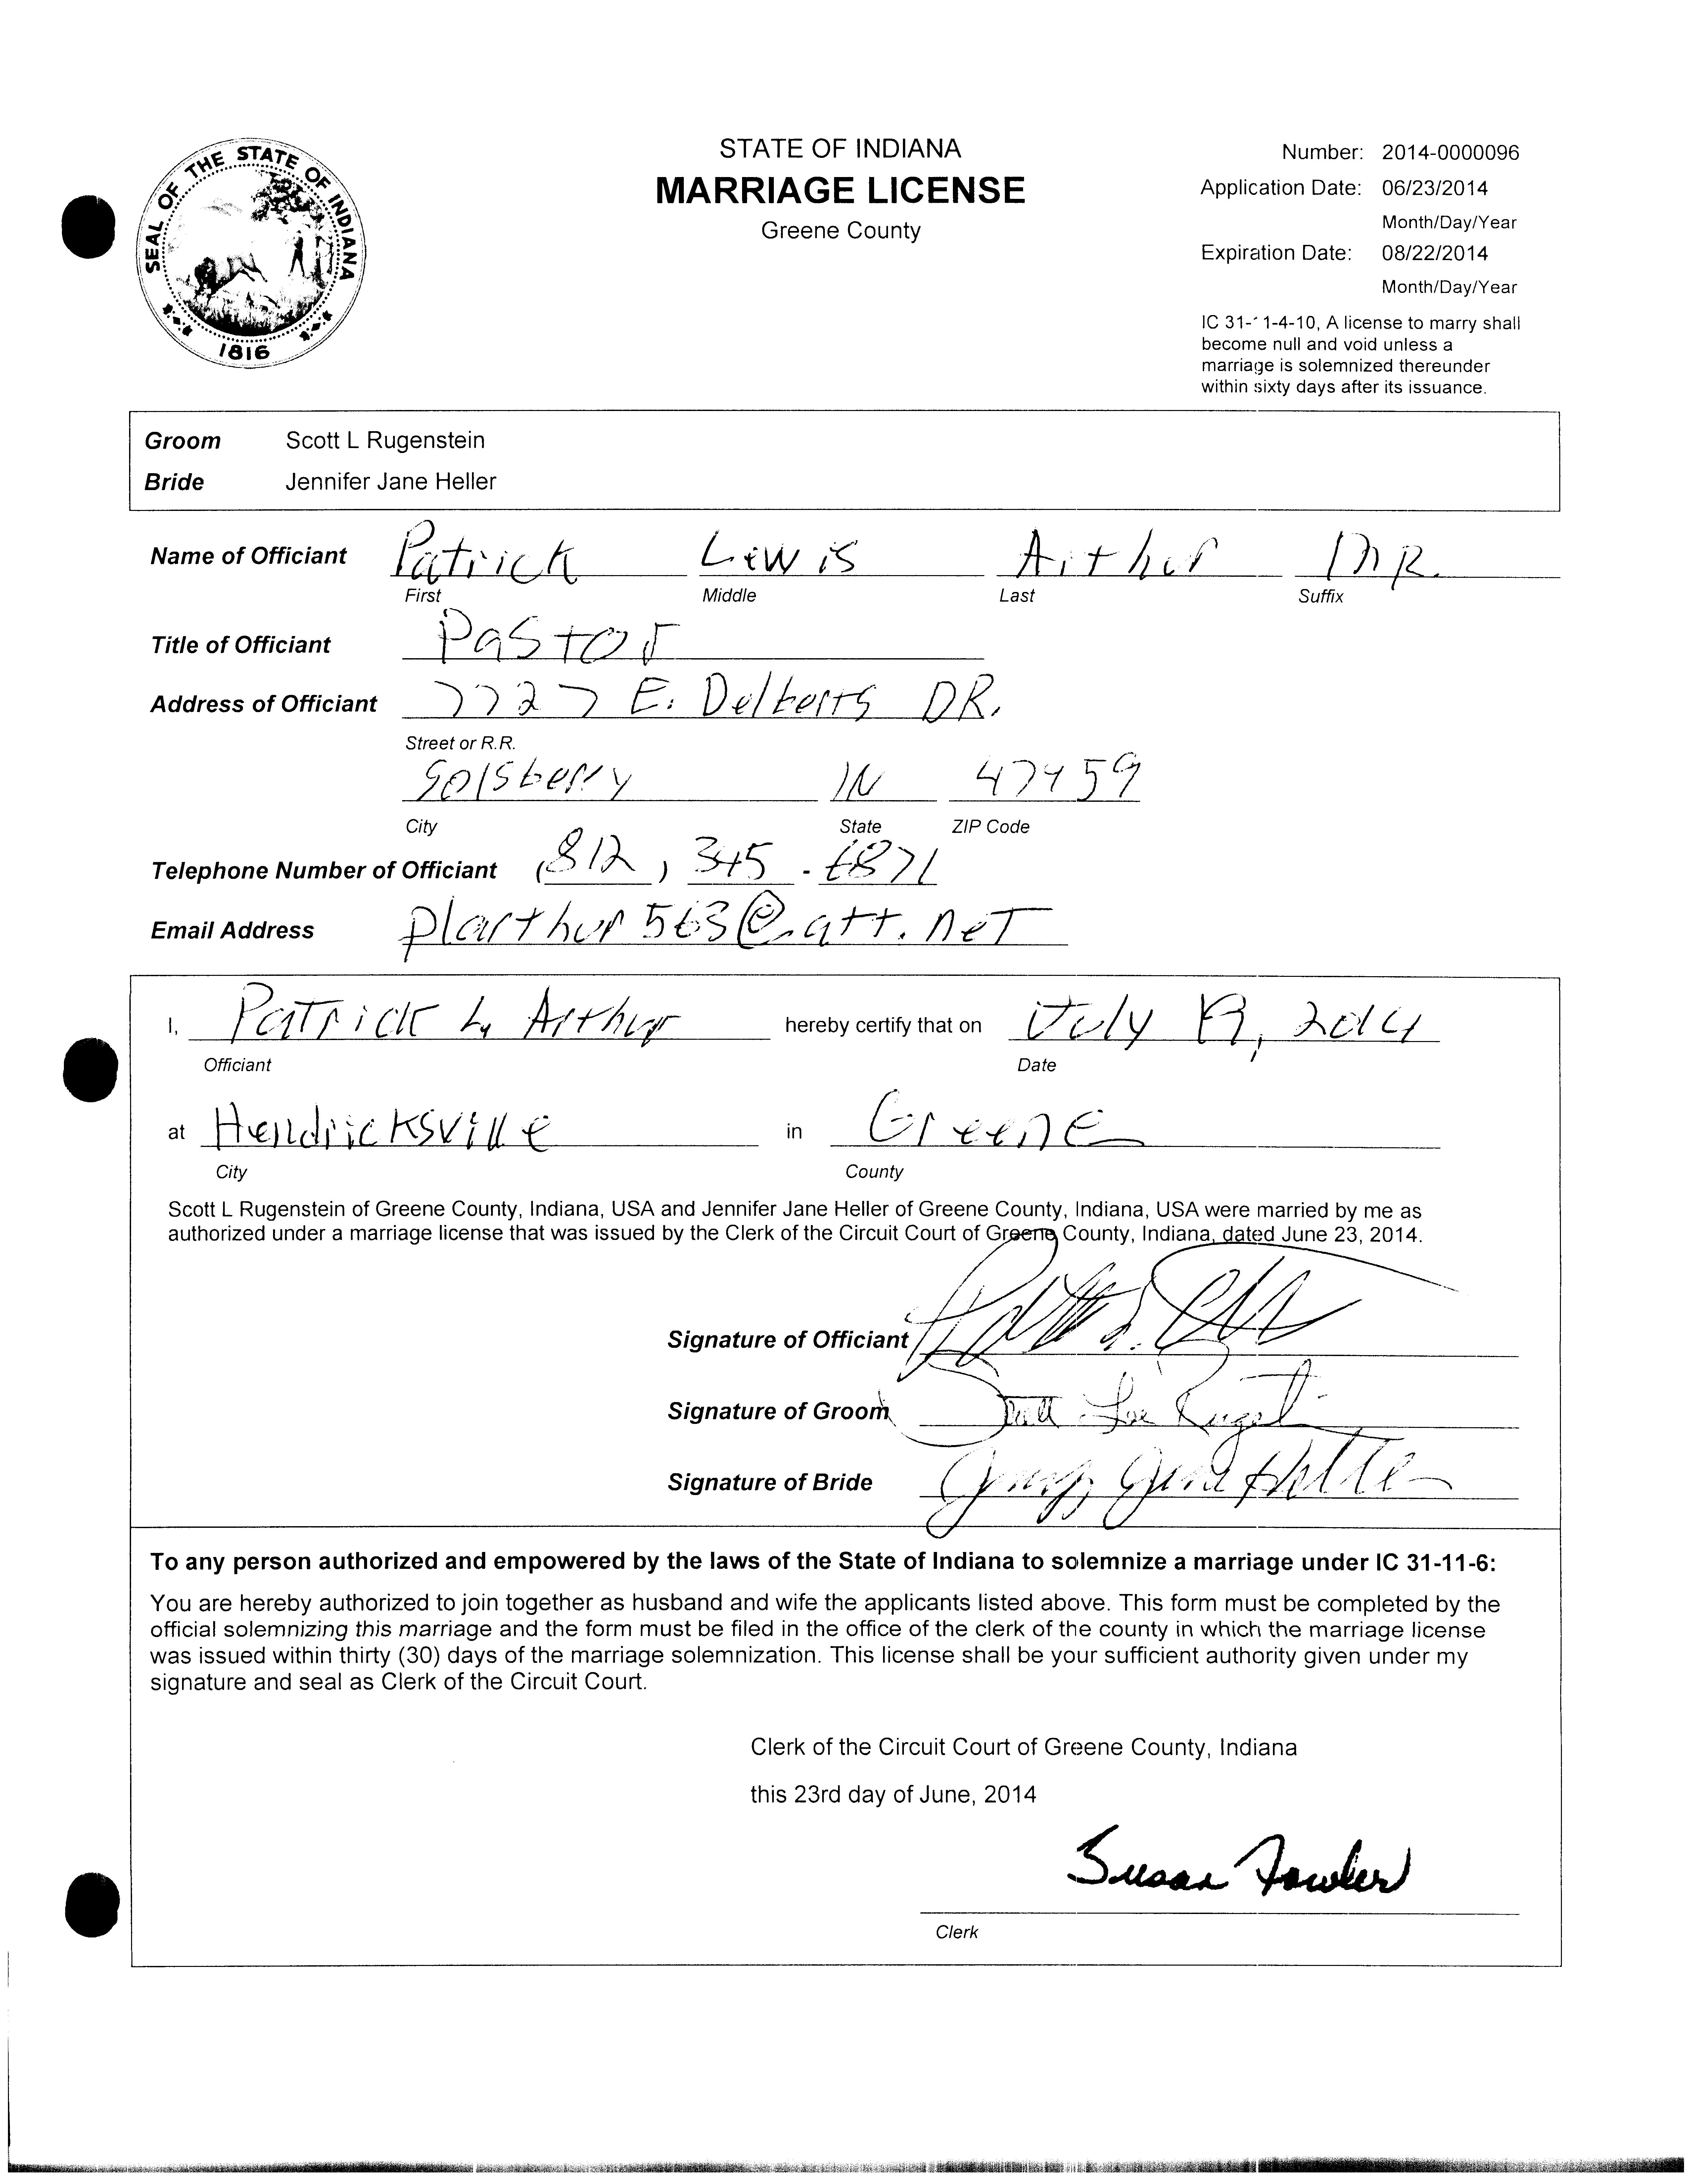 SEAL OF THE STATE OF INDIANA
1816
STATE OF INDIANA
MARRIAGE LICENSE
Greene County
Number: 2014-0000096
Application Date: 06/23/2014
Month/Day/Year
Expiration Date: 08/22/2014
Month/Day/Year
IC 31-11-4-10, A license to marry shall
become null and void unless a
marriage is solemnized thereunder
within sixty days after its issuance.
Groom Scott L Rugenstein
Bride Jennifer Jane Heller
Name of Officiant Patrick Lewis Arthur MR.
First Middle Last Suffix
Title of Officiant Pastor
Address of Officiant 7727 E. Delberts DR.
Street or R.R.
Solsberry IN 47459
City State ZIP Code
Telephone Number of Officiant (812) 345-6871
Email Address plarthur563@att.net
I, Patrick L Arthur hereby certify that on July 2014
Officiant Date
at Hendricksville in Greene
City County
Scott L Rugenstein of Greene County, Indiana, USA and Jennifer Jane Heller of Greene County, Indiana, USA were married by me as
authorized under a marriage license that was issued by the Clerk of the Circuit Court of Greene County, Indiana, dated June 23, 2014.
Signature of Officiant
Signature of Groom
Signature of Bride
To any person authorized and empowered by the laws of the State of Indiana to solemnize a marriage under IC 31-11-6:
You are hereby authorized to join together as husband and wife the applicants listed above. This form must be completed by the
official solemnizing this marriage and the form must be filed in the office of the clerk of the county in which the marriage license
was issued within thirty (30) days of the marriage solemnization. This license shall be your sufficient authority given under my
signature and seal as Clerk of the Circuit Court.
Clerk of the Circuit Court of Greene County, Indiana
this 23rd day of June, 2014
Susan Fowler
Clerk